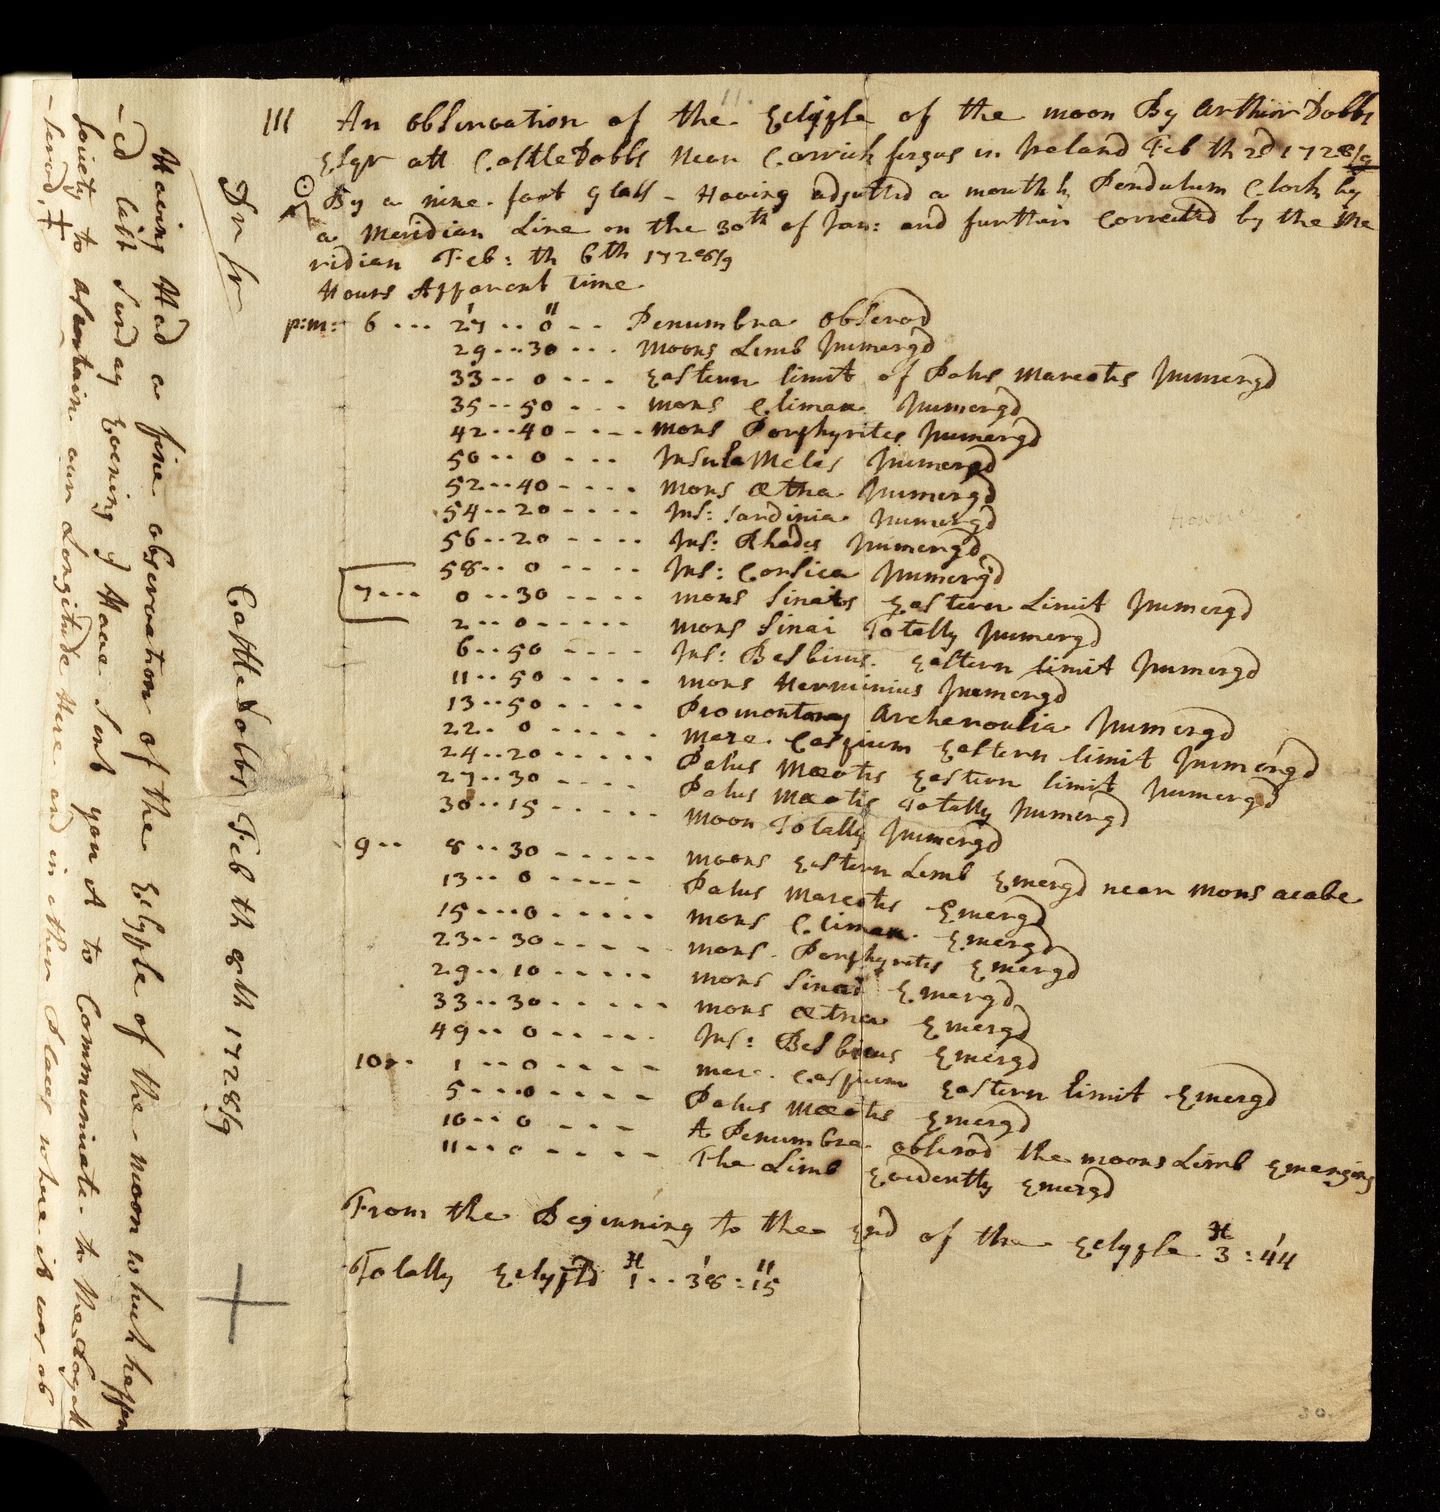 III An observation of the Eclypse of the moon By Arthur Dobbs
Esqr att CastleDobbs Near Carrickfergus in Ireland Feb th 2d 1728/9
By a nine foot glass - Having adjusted a month Pendulum Clock by
a Meridian Line on the 30th of Jan: and further Corrected by the Me
ridian Feb: th 6th 1728/9
Hours Apparent time
p:m: 6 ... 27' .. 0" .. Penumbra obserod
29 .. 30 ... moons Limb Immergd
33 .. 0 ... Eastern limit of Palus Mareotis Immergd
35 .. 50 ... mons Climax Immergd
42 .. 40 .... mons Porphyrites Immergd
50 .. 0 ... Insula Melas Immergd
52 .. 40 .... mons ætna Immergd
54 .. 20 .... Ins: Sardinia Immergd
56 .. 20 .... Ins: Rhodes Immergd
58 .. 0 .... Ins: Corsica Immergd
7 ... 0 .. 30 .... mons Sinais Eastern Limit Immergd
2 .. 0 ..... mons Sinai Totally Immergd
6 .. 50 .... Ins: Besbicus Eastern limit Immergd
11 .. 50 .... mons Herminius Immergd
13 .. 50 .... Promontory Archerousia Immergd
22 .. 0 ..... mare Caspium Eastern limit Immergd
24 .. 20 ..... Palus Mæotis Eastern limit Immergd
27 .. 30 .... Palus Mæotis Totally Immergd
30 .. 15 ..... Moon Totally Immergd
9 .. 8 .. 30 ..... moons Eastern Limb Emergd near mons acabe
13 .. 0 ..... Palus Mareotis Emergd
15 ... 0 ..... mons Climax Emergd
23 .. 30 ..... mons Porphyrites Emergd
29 .. 10 ..... mons Sinai Emergd
33 .. 30 ...... mons ætna Emergd
49 .. 0 ..... Ins: Besbicus Emergd
10 .. 1 .. 0 ..... mare Caspium Eastern limit Emergd
5 ... 0 .... Palus Mæotis Emergd
10 .. 0 ... A Penumbra obserod the moons Limb Emerging
11 .. 0 .... The Limb Evidently Emergd
From the Beginning to the End of the Eclypse H 3 : 44'
Totally Eclypsd H 1 .. 38' : 15"
Dr Sr
Castle Dobbs Feb th 8th 1728/9
Having Had a fine observation of the Eclypse of the moon which happen
-ed last Sunday Evening I Have sent you it to Communicate to the Royall
Society to ascertain our Longitude Here and in other Places where it was ob
-serod